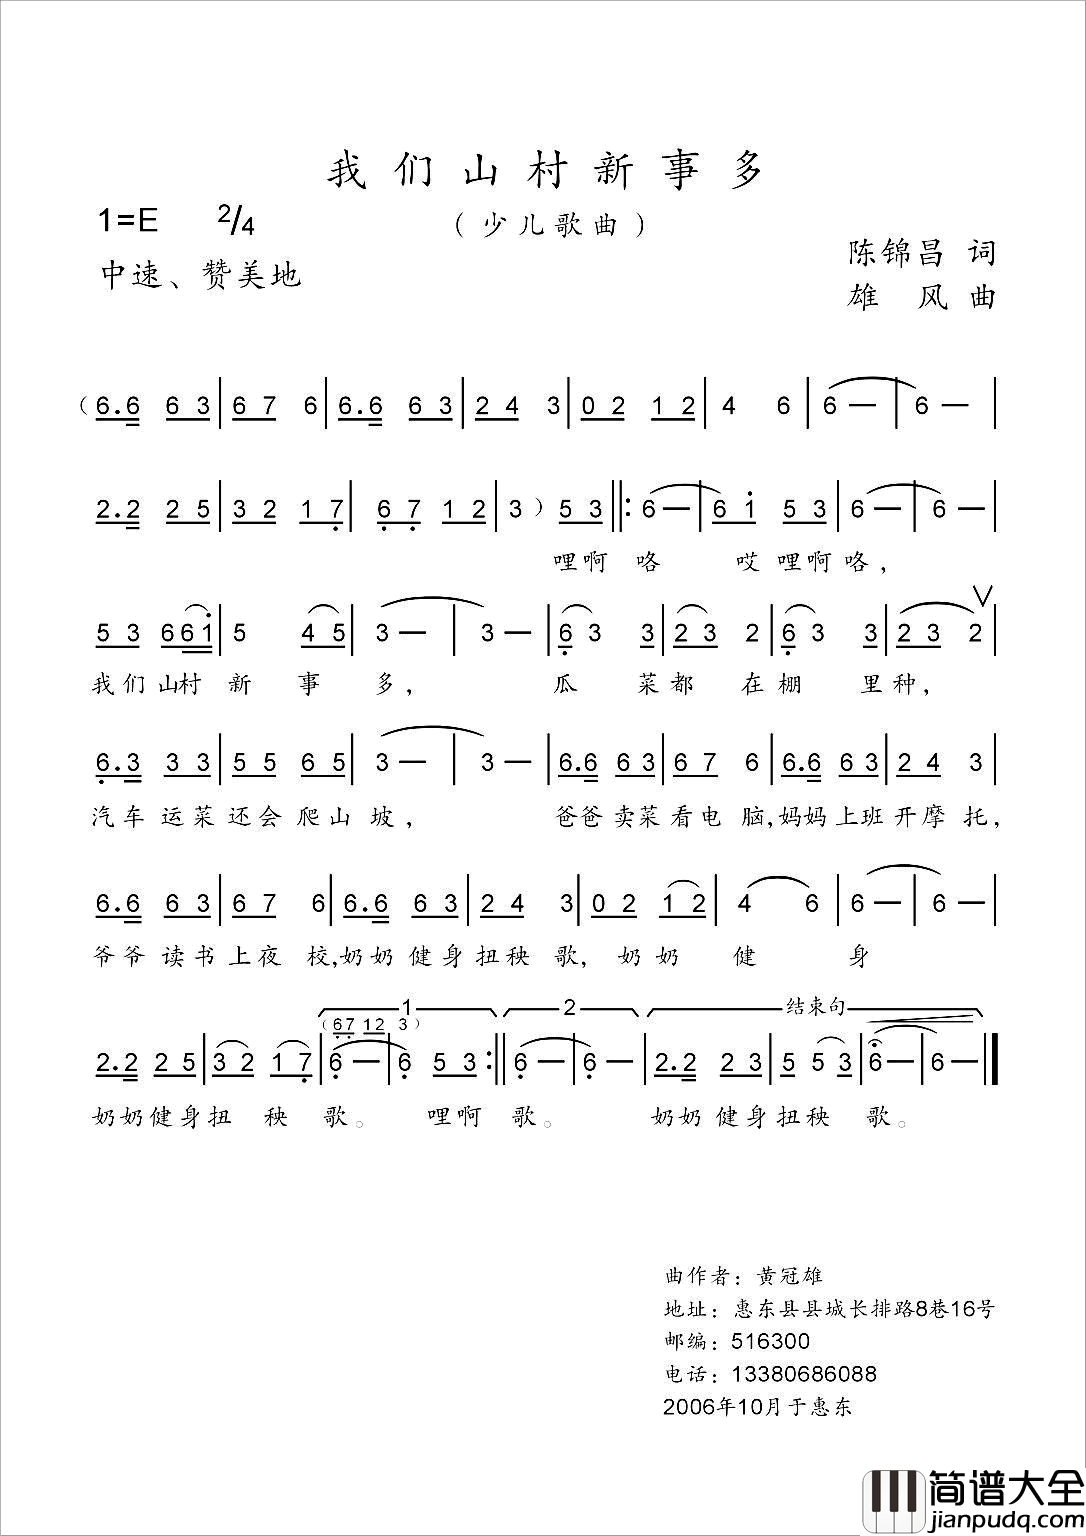 我们山村新事多
1=E 2/4
（少儿歌曲）
中速、赞美地
陈锦昌 词
雄 风 曲
（6.6 6 3|6 7 6|6.6 6 3|2 4 3|0 2 1 2|4 6|6 —|6 —|
2.2 2 5|3 2 1 7|6 7 1 2|3 ） 5 3||:6 —|6 i 5 3|6 —|6 —|
哩啊 咯 哎 哩啊 咯，
5 3 6 6 i|5 4 5|3 —|3 —|6 3 3|2 3 2|6 3 3|2 3 2|
我们 山村 新 事 多， 瓜 菜都 在棚 里种，
6.3 3 3|5 5 6 5|3 —|3 —|6.6 6 3|6 7 6|6.6 6 3|2 4 3|
汽车 运菜 还会 爬山 坡， 爸爸 卖菜 看电 脑,妈妈 上班 开摩 托，
6.6 6 3|6 7 6|6.6 6 3|2 4 3|0 2 1 2|4 6|6 —|6 —|
爷爷 读书 上夜 校,奶奶 健身 扭秧 歌， 奶奶 健 身
1 2 结束句
（6 7 1 2 3）
2.2 2 5|3 2 1 7|6 —|6 5 3:||6 —|6 —|2.2 2 3|5 5 3|6 —|6 —||
奶奶健身扭 秧 歌。 哩啊 歌。 奶奶 健身扭秧 歌。
曲作者：黄冠雄
地址：惠东县县城长排路8巷16号
邮编：516300
电话：13380686088
2006年10月于惠东
简谱大全
jianpudq.com